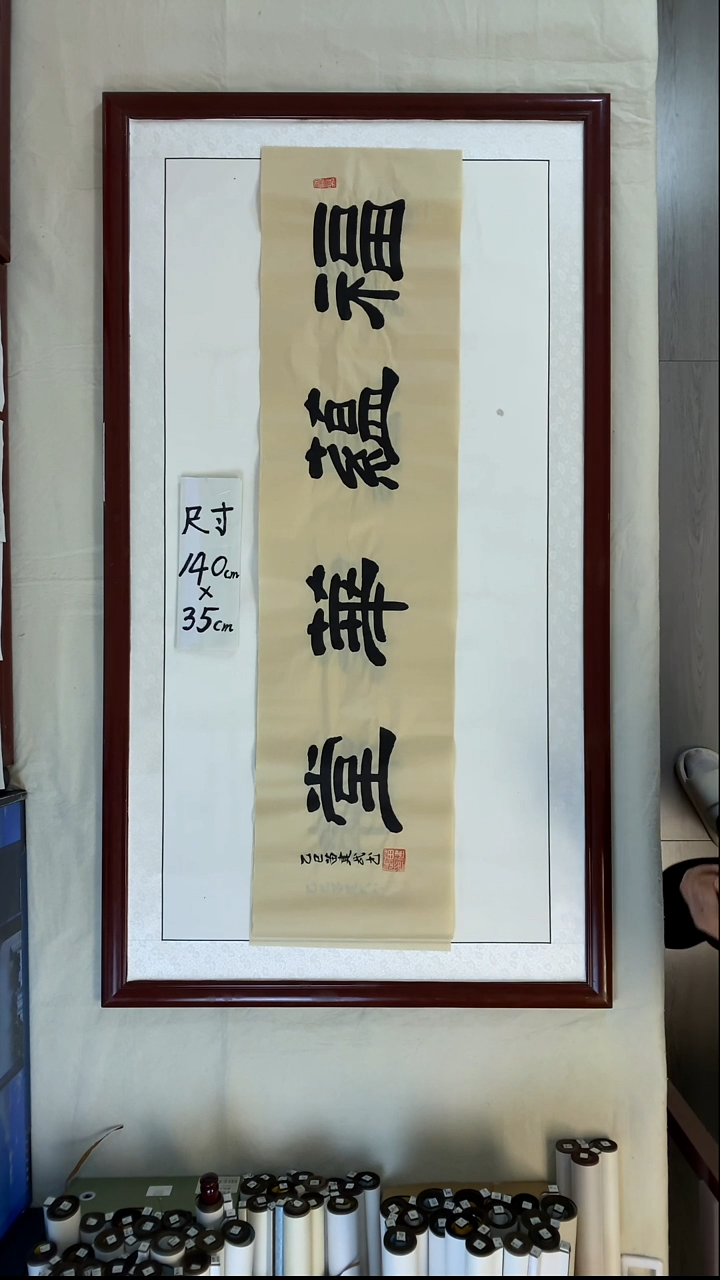 福蘊華堂
乙巳
尺寸
140cm
×
35cm